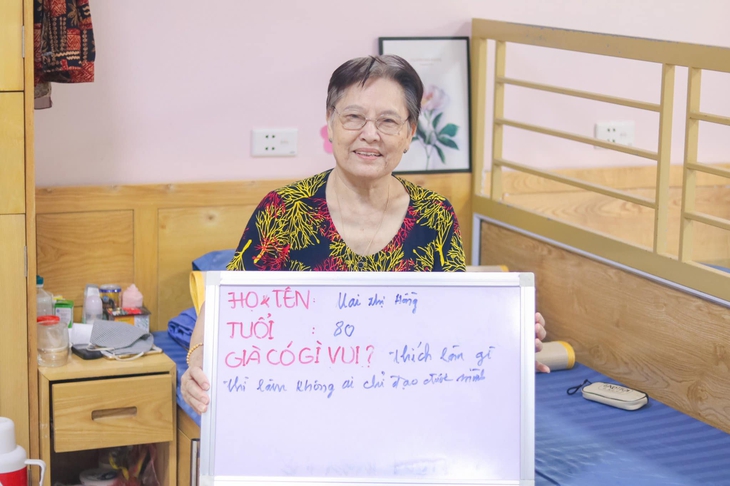 HỌ & TÊN: Mai Thị Hồng
TUỔI : 80
GIÀ CÓ GÌ VUI? Thích làm gì
thì làm không ai chỉ đạo được mình